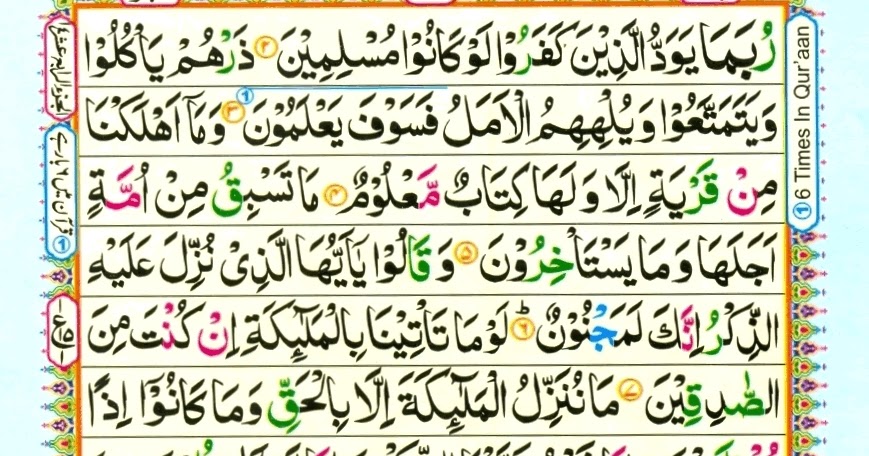 رُبَمَا يَوَدُّ الَّذِيْنَ كَفَرُوْا لَوْ كَانُوْا مُسْلِمِيْنَ ۝۲ ذَرْهُمْ يَاْكُلُوْا
وَيَتَمَتَّعُوْا وَيُلْهِهِمُ الْاَمَلُ فَسَوْفَ يَعْلَمُوْنَ ۝۳ وَمَاۤ اَهْلَكْنَا
مِنْ قَرْيَةٍ اِلَّا وَلَهَا كِتَابٌ مَّعْلُوْمٌ ۝۴ مَا تَسْبِقُ مِنْ اُمَّةٍ
اَجَلَهَا وَمَا يَسْتَاْخِرُوْنَ ۝۵ وَقَالُوْا يٰۤاَيُّهَا الَّذِیْ نُزِّلَ عَلَيْهِ
الذِّكْرُ اِنَّكَ لَمَجْنُوْنٌ ۝۶ؕ لَوْ مَا تَاْتِيْنَا بِالْمَلٰٓئِكَةِ اِنْ كُنْتَ مِنَ
الصّٰدِقِيْنَ ۝۷ مَا نُنَزِّلُ الْمَلٰٓئِكَةَ اِلَّا بِالْحَقِّ وَمَا كَانُوْۤا اِذًا
① 6 Times In Qur'aan
قرآن میں ۶ بار ہے ①